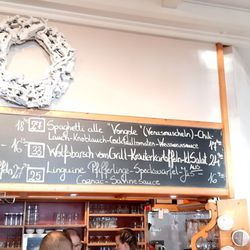 18⁵⁰ 71 Spaghetti alle "Vongole" (Venusmuscheln)-Chili-
Lauch-Knoblauch-Cocktailtomaten-Weissweinsauce
16 33 Wolfsbarsch vom Grill-Kräuterkartoffeln-kl. Salat 24
25 Linguine Pfifferlinge-Speckwürfel-
Cognac-Sahnesauce 16